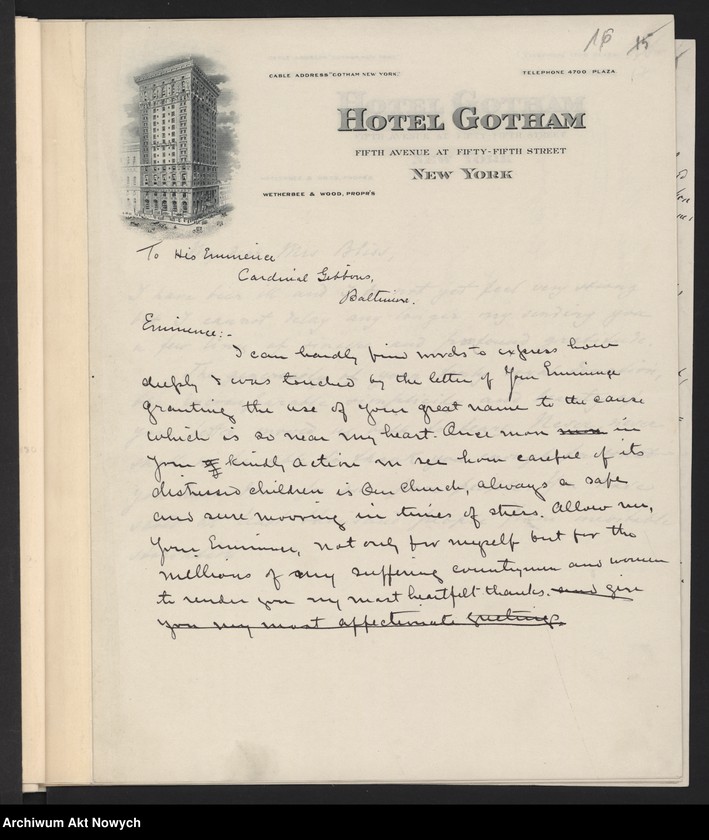 16 15
CABLE ADDRESS "GOTHAM NEW YORK."
TELEPHONE 4700 PLAZA
HOTEL GOTHAM
FIFTH AVENUE AT FIFTY-FIFTH STREET
NEW YORK
WETHERBEE & WOOD, PROPR'S
To His Eminence
Cardinal Gibbons,
Baltimore.
Eminence:-
I can hardly find words to express how
deeply I was touched by the letter of Your Eminence
granting the use of your great name to the cause
which is so near my heart. Once more in
your kindly action we see how careful of its
distressed children is Our Church, always a safe
and sure mooring in times of stress. Allow me,
Your Eminence, not only for myself but for the
millions of my suffering countrymen and women
to render you my most heartfelt thanks. and give
you my most affectionate greetings
Archiwum Akt Nowych